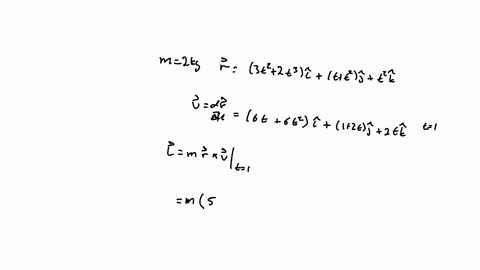 m=2kg r⃗ = (3t²+2t³)î + (t+t²)ĵ + t²k̂
v⃗ = dr⃗/dt = (6t + 6t²) î + (1+2t)ĵ + 2tk̂ t=1
L⃗ = m r⃗ × v⃗ |t=1
= m ( 5